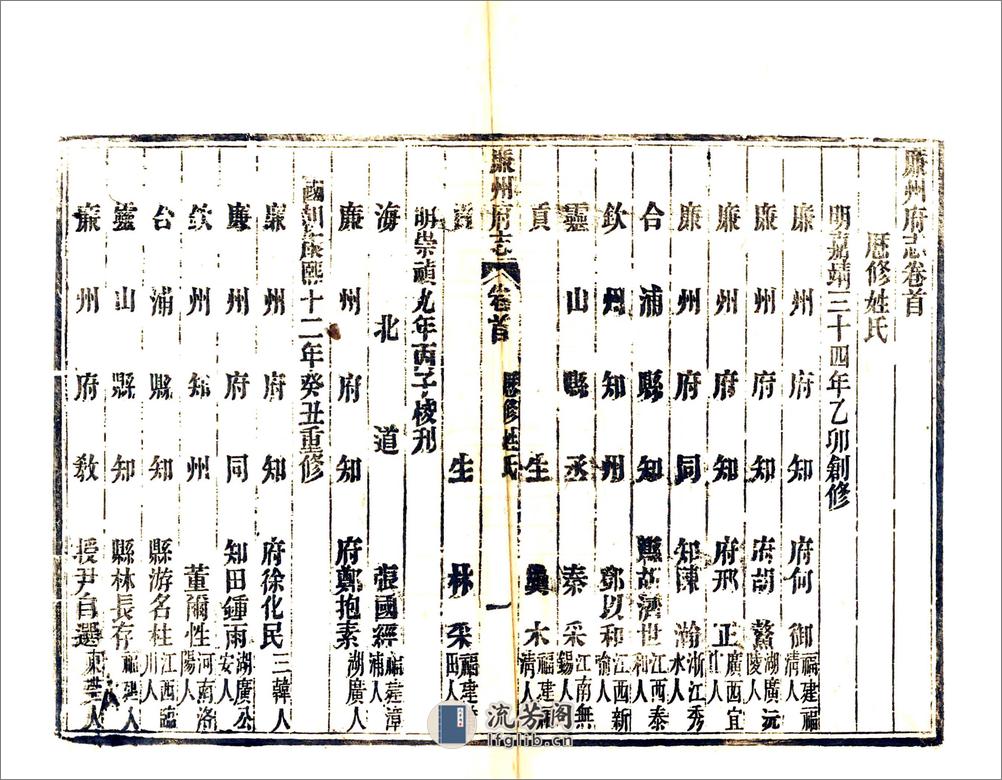 廉州府志卷首
歷修姓氏
明嘉靖三十四年乙卯創修
廉州府知府何御福建福清人
廉州府知府胡鰲湖廣沅陵人
廉州府知府邢正廣西宜山人
廉州府同知陳瀚浙江秀水人
合浦縣知縣胡濟世江西泰和人
欽州知州鄧以和江西新喻人
靈山縣丞秦采江南無錫人
貢生木福建清人
廉州府志 卷首 歷修姓氏 一
貢生林采福建田人
明崇禎九年丙子校刊
海北道張國經福建漳浦人
廉州府知府鄭抱素湖廣人
國朝康熙十二年癸丑重修
廉州府知府徐化民三韓人
廉州府同知田鍾雨湖廣公安人
欽州知州董爾性河南洛陽人
合浦縣知縣游名柱江西臨川人
靈山縣知縣林長存福人
廉州府教授尹自選東莞人
流芳阁
lfglib.cn